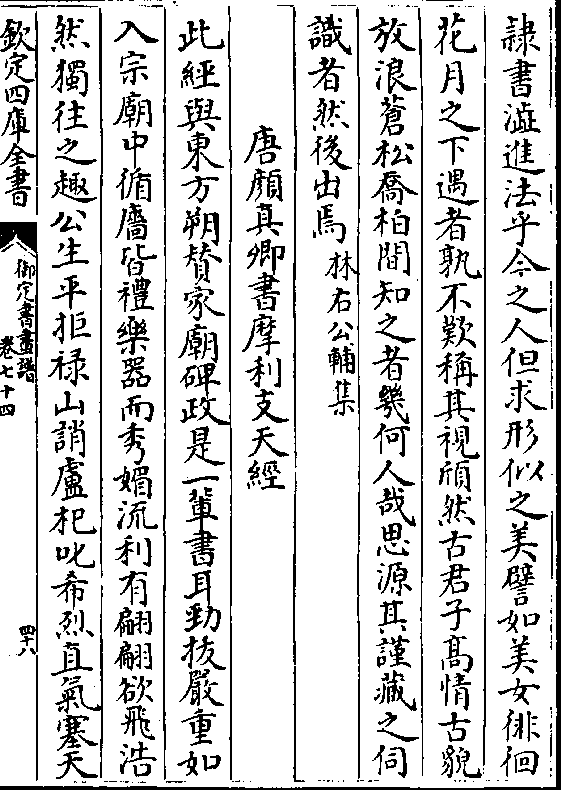 隷書澁進法乎今之人但求形似之美譬如美女徘徊
花月之下遇者孰不歎稱其視頎然古君子髙情古貌
放浪蒼松喬柏間知之者幾何人哉思源其謹藏之伺
識者然後出焉林右公輔集
唐顔真卿書摩利支天經
此經與東方朔賛家廟碑政是一軰書耳勁抜嚴重如
入宗廟中循廧皆禮樂器而秀媚流利有翩翩欲飛浩
然獨徃之趣公生平拒禄山誚盧𣏌叱希烈直氣塞天
欽定四庫全書
御定書畫譜
卷七十四
四十八